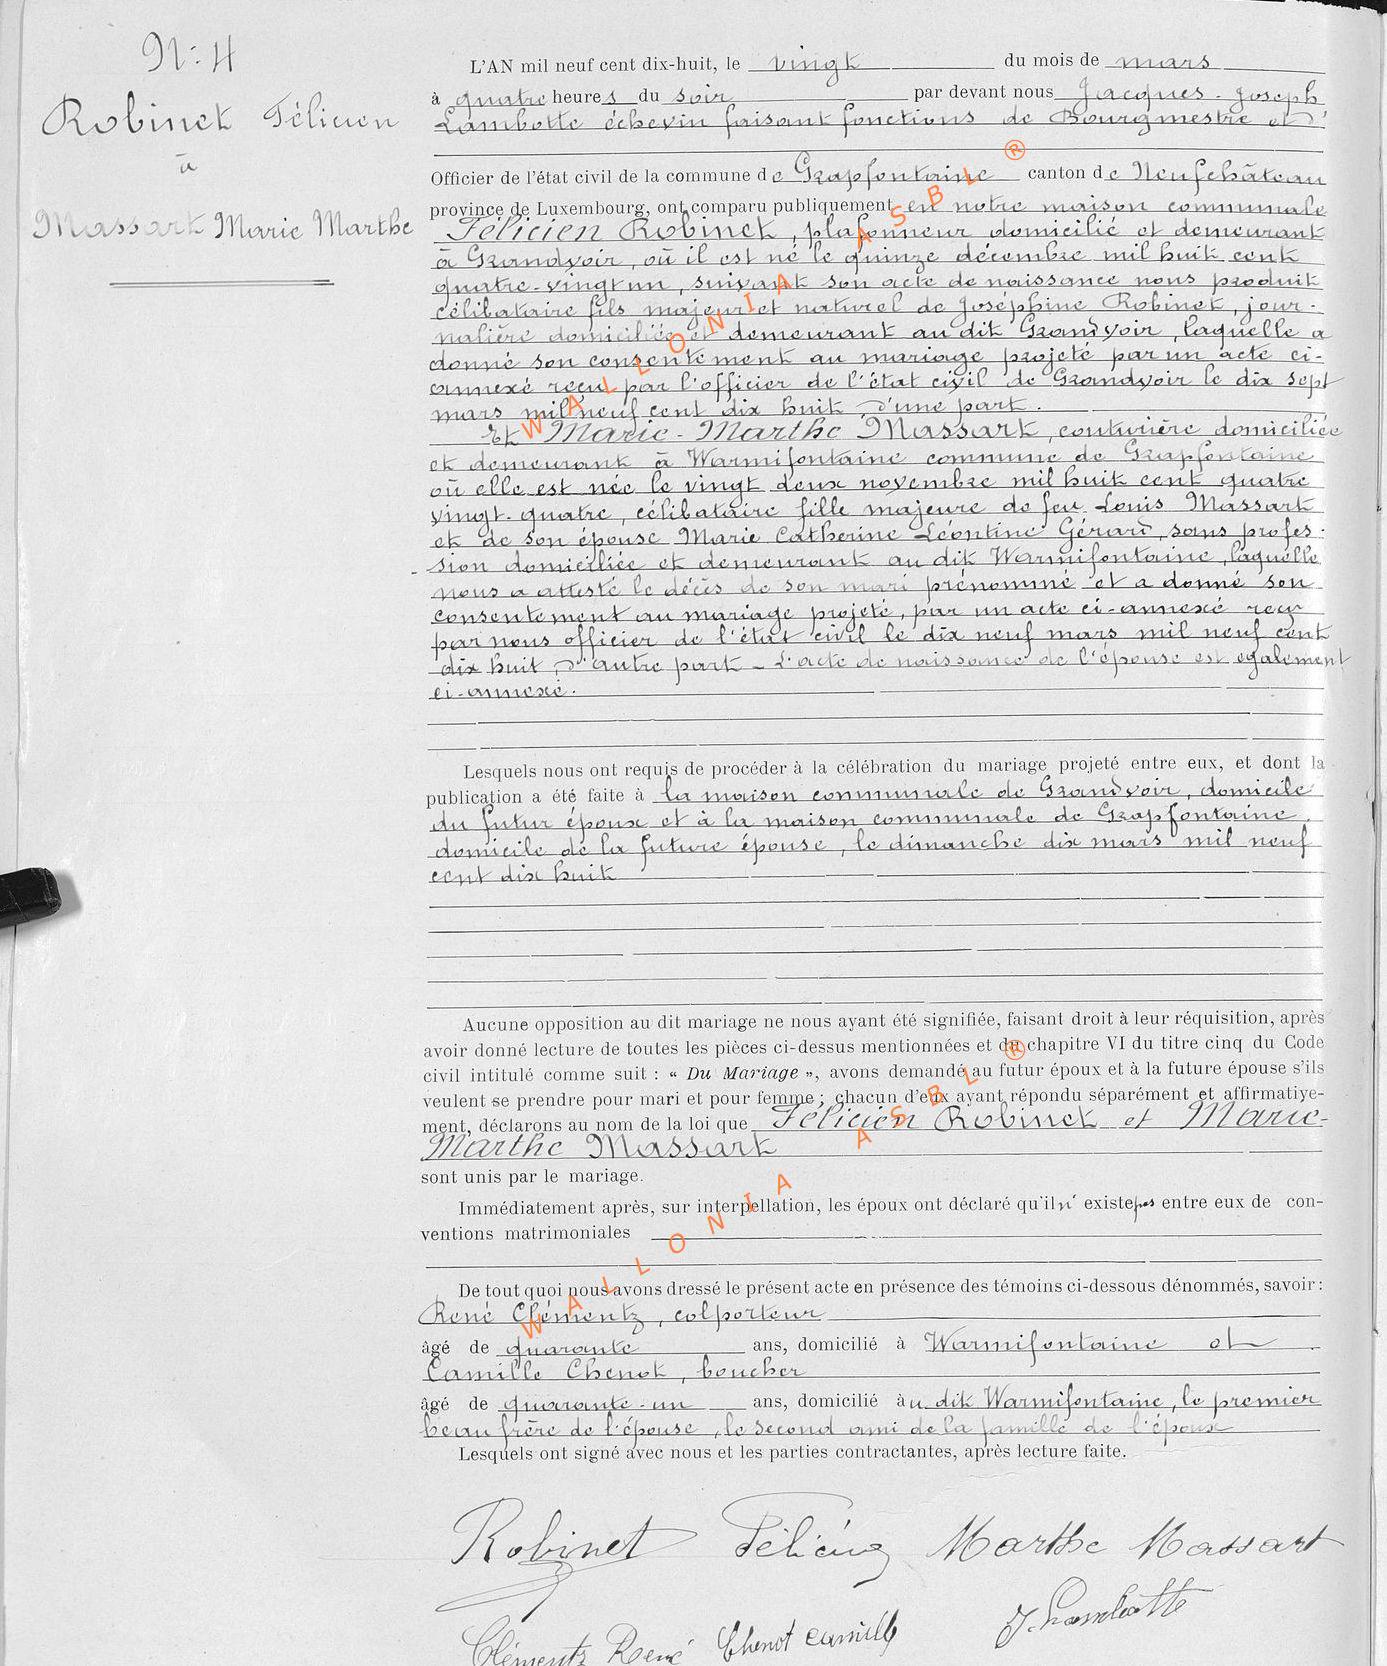 N: 4
Robinet Félicien
à
Massart Marie Marthe
L'AN mil neuf cent dix-huit, le vingt du mois de mars
à quatre heures du soir par devant nous Jacques-Joseph
Lambotte échevin faisant fonctions de Bourgmestre et d'
Officier de l'état civil de la commune de Grapfontaine canton de Neufchâteau
province de Luxembourg, ont comparu publiquement en notre maison communale
Félicien Robinet, plafonneur domicilié et demeurant
à Grandvoir, où il est né le quinze décembre mil huit cent
quatre-vingt un, suivant son acte de naissance nous produit
célibataire fils majeur et naturel de Joséphine Robinet, jour-
nalière domiciliée et demeurant au dit Grandvoir, laquelle a
donné son consentement au mariage projeté par un acte ci-
annexé reçu par l'officier de l'état civil de Grandvoir le dix sept
mars mil neuf cent dix huit, d'une part.
Et Marie-Marthe Massart, couturière domiciliée
et demeurant à Warmifontaine commune de Grapfontaine
où elle est née le vingt deux novembre mil huit cent quatre
vingt-quatre, célibataire fille majeure de feu Louis Massart
et de son épouse Marie Catherine Léontine Gérard, sans profes-
sion domiciliée et demeurant au dit Warmifontaine, laquelle
nous a attesté le décès de son mari prénommé et a donné son
consentement au mariage projeté, par un acte ci-annexé reçu
par nous officier de l'état civil le dix neuf mars mil neuf cent
dix huit, d'autre part - L'acte de naissance de l'épouse est également
ci-annexé.
Lesquels nous ont requis de procéder à la célébration du mariage projeté entre eux, et dont la
publication a été faite à la maison communale de Grandvoir, domicile
du futur époux et à la maison communale de Grapfontaine,
domicile de la future épouse, le dimanche dix mars mil neuf
cent dix huit
Aucune opposition au dit mariage ne nous ayant été signifiée, faisant droit à leur réquisition, après
avoir donné lecture de toutes les pièces ci-dessus mentionnées et du chapitre VI du titre cinq du Code
civil intitulé comme suit : « Du Mariage », avons demandé au futur époux et à la future épouse s'ils
veulent se prendre pour mari et pour femme ; chacun d'eux ayant répondu séparément et affirmative-
ment, déclarons au nom de la loi que Félicien Robinet et Marie-
Marthe Massart
sont unis par le mariage.
Immédiatement après, sur interpellation, les époux ont déclaré qu'il n'existe pas entre eux de con-
ventions matrimoniales
De tout quoi nous avons dressé le présent acte en présence des témoins ci-dessous dénommés, savoir :
René Clémentz, colporteur
âgé de quarante ans, domicilié à Warmifontaine et
Camille Chenot, boucher
âgé de quarante-un ans, domicilié au dit Warmifontaine, le premier
beau frère de l'épouse, le second ami de la famille de l'époux
Lesquels ont signé avec nous et les parties contractantes, après lecture faite.
Robinet Félicien Marthe Massart
Clémentz René Chenot Camille J. Lambotte
WALLONIA ASBL ®
WALLONIA ASBL ®